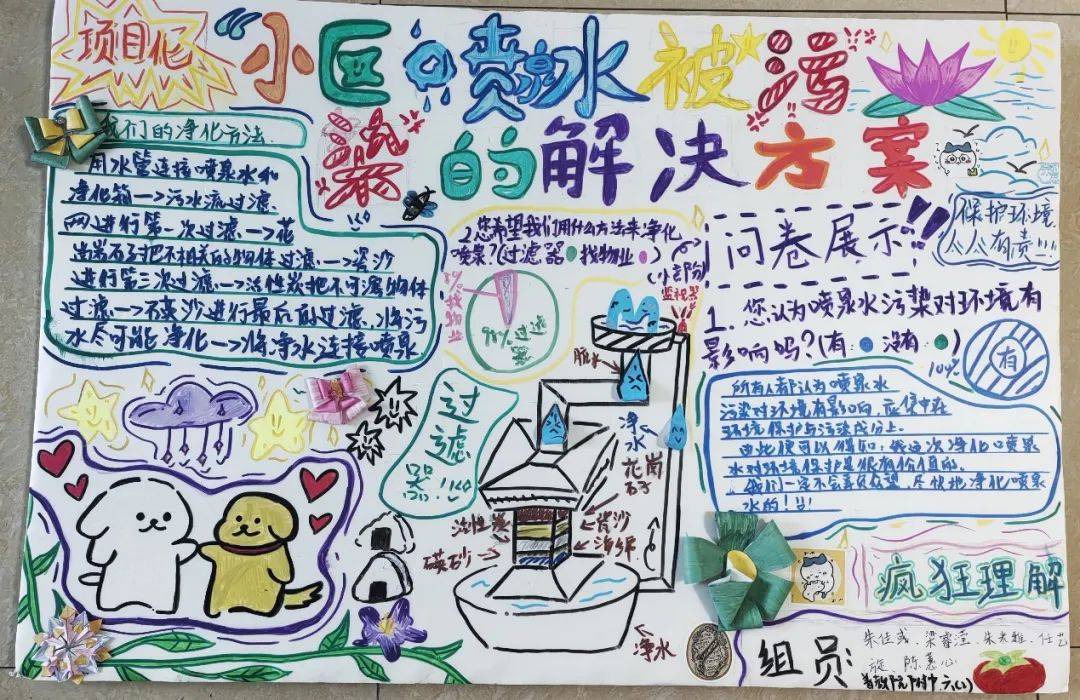 项目化
“小区喷泉水被污
染的解决方案
我们的净化方法.
用水管连接喷泉水和
净化箱一>污水流过滤.
网进行第一次过滤.一>花
岗岩石子把不相关的物体过滤.一>瓷沙
进行第三次过滤.一>活性炭把不可溶物体
过滤.一>石英沙进行最后的过滤.将污
水尽可能净化一>将净水连接喷泉
2.您希望我们用什么方法来净化
喷泉?(过滤器 找物业 )
(小言部分)
9%找物业
91%过滤
器
监视器
脏水
净
水
花岗
石子
过滤器!
活性炭
瓷沙
海绵
英砂
净水
问卷展示!!
保护环境,
人人有责!!!
1.您认为喷泉水污染对环境有
影响吗?(有: 没有: )
100%
有
所有人都认为喷泉水
污染对环境有影响,应集中在
环境保护与污染成分上.
由此便可以得知:我这次净化喷泉
水对环境保护是很有价值的.
我们一定不会辜负众望,尽快地净化喷泉
水的!!!
疯狂理解
组员:
朱佳彧、梁睿滢、朱美雅、任艺
旋、陈慧心